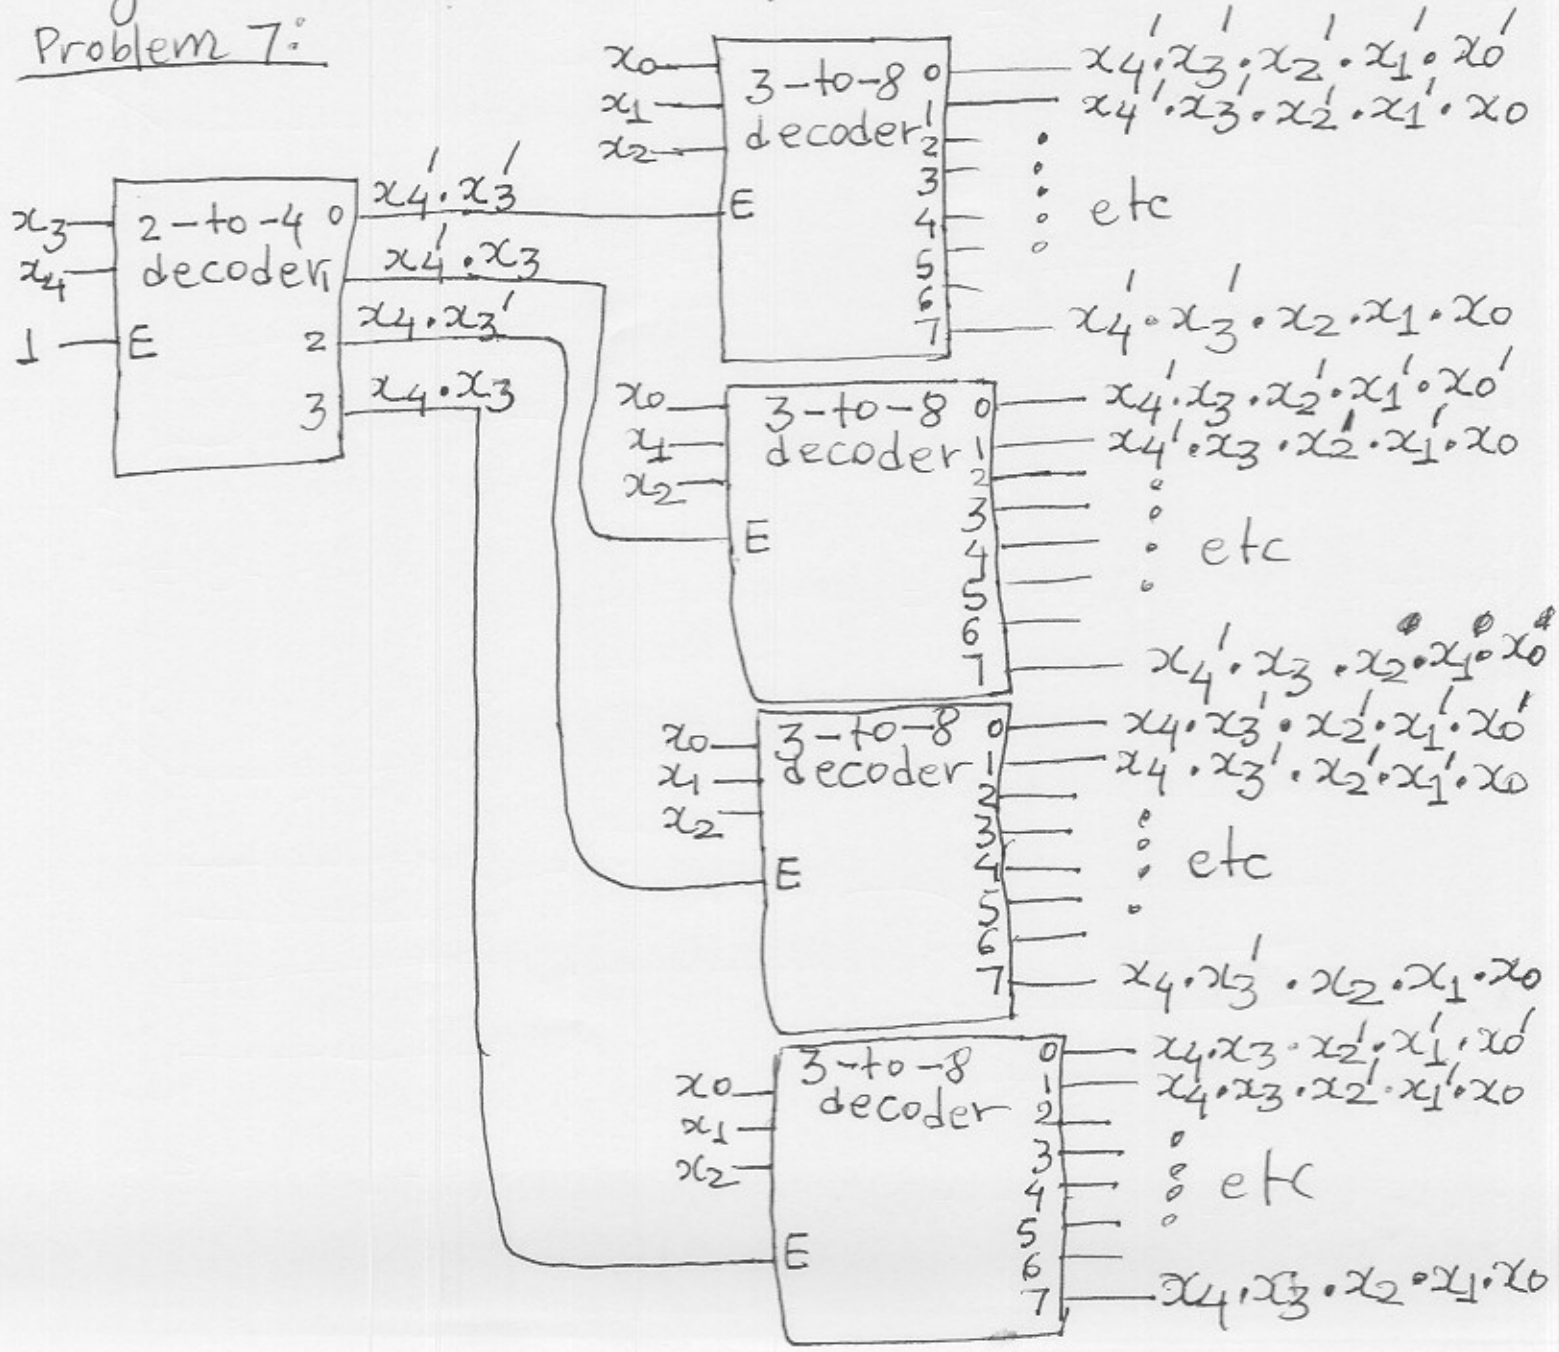 Problem 7:
x3
x4
1
2-to-4
decoder
E
0
1
2
3
x4'·x3'
x4'·x3
x4·x3'
x4·x3
x0
x1
x2
3-to-8
decoder
E
0
1
2
3
4
5
6
7
x4'·x3'·x2'·x1'·x0'
x4'·x3'·x2'·x1'·x0
etc
x4'·x3'·x2·x1·x0
x0
x1
x2
3-to-8
decoder
E
0
1
2
3
4
5
6
7
x4'·x3·x2'·x1'·x0'
x4'·x3·x2'·x1'·x0
etc
x4'·x3·x2·x1·x0
x0
x1
x2
3-to-8
decoder
E
0
1
2
3
4
5
6
7
x4·x3'·x2'·x1'·x0'
x4·x3'·x2'·x1'·x0
etc
x4·x3'·x2·x1·x0
x0
x1
x2
3-to-8
decoder
E
0
1
2
3
4
5
6
7
x4·x3·x2'·x1'·x0'
x4·x3·x2'·x1'·x0
etc
x4·x3·x2·x1·x0